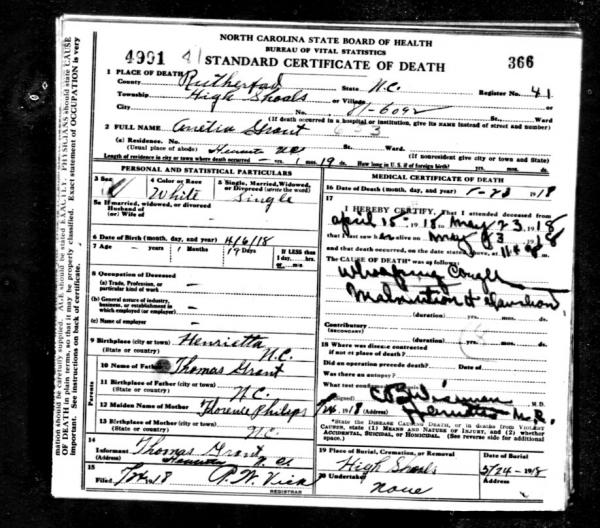 NORTH CAROLINA STATE BOARD OF HEALTH
BUREAU OF VITAL STATISTICS
4991 41 STANDARD CERTIFICATE OF DEATH 366
1 PLACE OF DEATH
County Rutherford State N.C. Register No. 41
Township High Shoals or Village
City No. St. Ward
(If death occurred in a hospital or institution, give its NAME instead of street and number)
2 FULL NAME Grant
(a) Residence. No. Henrietta N.C. St. Ward
(Usual place of abode) (If nonresident give city or town and State)
Length of residence in city or town where death occurred – 1 mos. 19 ds. How long in U.S. if of foreign birth?
PERSONAL AND STATISTICAL PARTICULARS
3 Sex
4 Color or Race White
5 Single, Married, Widowed, or Divorced (write the word) Single
5a If married, widowed, or divorced
Husband of
(or) Wife of –
6 Date of Birth (month, day, and year) 4/6/18
7 Age 1 Months 19 Days If LESS than
8 Occupation of Deceased
(a) Trade, Profession, or particular kind of work –
(b) General nature of industry, business, or establishment in which employed (or employer) –
(c) Name of employer –
9 Birthplace (city or town) Henrietta
(State or country) N.C.
10 Name of Father Thomas Grant
11 Birthplace of Father (city or town)
(State or country) N.C.
12 Maiden Name of Mother Florence Philips
13 Birthplace of Mother (city or town)
(State or country) N.C.
14
Informant Thomas Grant
(Address) N.C.
15
Filed 18
REGISTRAR
MEDICAL CERTIFICATE OF DEATH
16 Date of Death (month, day, and year) 5-23 1918
17
I HEREBY CERTIFY, That I attended deceased from
April 18, 1918 to May 23, 1918
that I last saw alive on May 23, 1918
and that death occurred, on the date stated above, at m.
The CAUSE OF DEATH was as follows:
Whooping Cough
Malnutrition & Exhaustion
(duration) yrs. mos. ds.
Contributory
(SECONDARY)
(duration) yrs. mos. ds.
18 Where was disease contracted
if not at place of death?
Did an operation precede death? Date of
Was there an autopsy?
What test confirmed
(Signed) M.D.
1918 (Address) Henrietta N.C.
State the DISEASE CAUSING DEATH, or in deaths from VIOLENT CAUSES, state (1) MEANS AND NATURE OF INJURY, and (2) whether ACCIDENTAL, SUICIDAL, or HOMICIDAL. (See reverse side for additional
19 Place of Burial, Cremation, or Removal Date of Burial
High Shoals 5/24 1918
20 Undertaker Address
None
PARENTS
mation should be carefully supplied. AGE should be stated EXACTLY. PHYSICIANS should state CAUSE
OF DEATH in plain terms, so that it may be properly classified. Exact statement of OCCUPATION is very
important. See instructions on back of certificate.